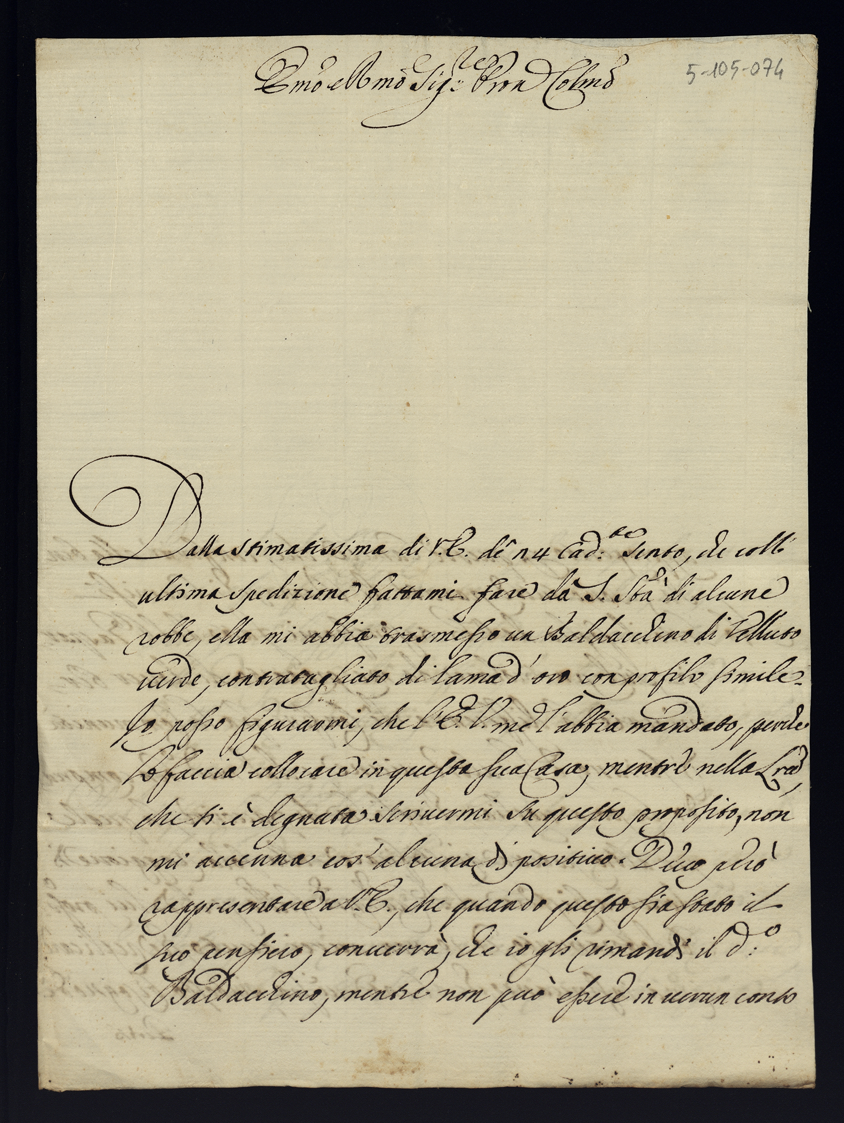 Emo e Rmo Sig:re Pron Colmo
5-105-074
Dalla stimatissima di V.E. de n 4 cad:te sento, che coll'
ultima spedizione fattami fare da S. Sba di alcune
robbe, ella mi abbia trasmesso un Baldacchino di Velluto
verde, contratagliato di lama d'oro con profilo simile.
Io posso figurarmi, che l'E.V. me l'abbia mandato, perche
lo faccia collocare in questa sua Casa, mentre nella Lra,
che si è degnata scrivermi su questo proposito, non
mi accenna cos' alcuna di positivo. Devo però
rappresentare a V.E., che quando questo sia stato il
suo pensiero, converrà, che io gli rimandi il d:o
Baldacchino, mentre non può essere in verun conto